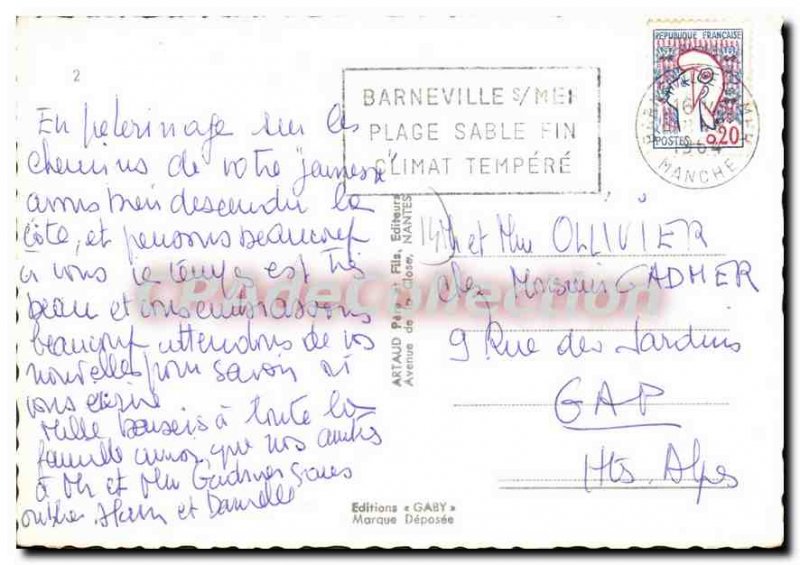 2
En pelerinage sur les
chemins de votre "jeunesse"
avons bien descendu la
côte, et pensons beaucoup
à vous le temps est très
beau et vous embrassons
beaucoup attendons de vos
nouvelles pour savoir où
vous écrire
Mille baisers à toute la
famille ainsi que nos amitiés
à Mr et Mme Gadmer sans
oublier Alain et Danielle
BARNEVILLE S/MER
PLAGE SABLE FIN
CLIMAT TEMPÉRÉ
REPUBLIQUE FRANÇAISE
POSTES 0,20
16
1964
MANCHE
Mr et Mme OLLIVIER
chez Messieurs GADMER
9 Rue des Jardins
GAP
Htes Alpes
ARTAUD Père et Fils, Editeurs
Avenue de la Close, NANTES
Editions « GABY »
Marque Déposée
CPAdeCollection